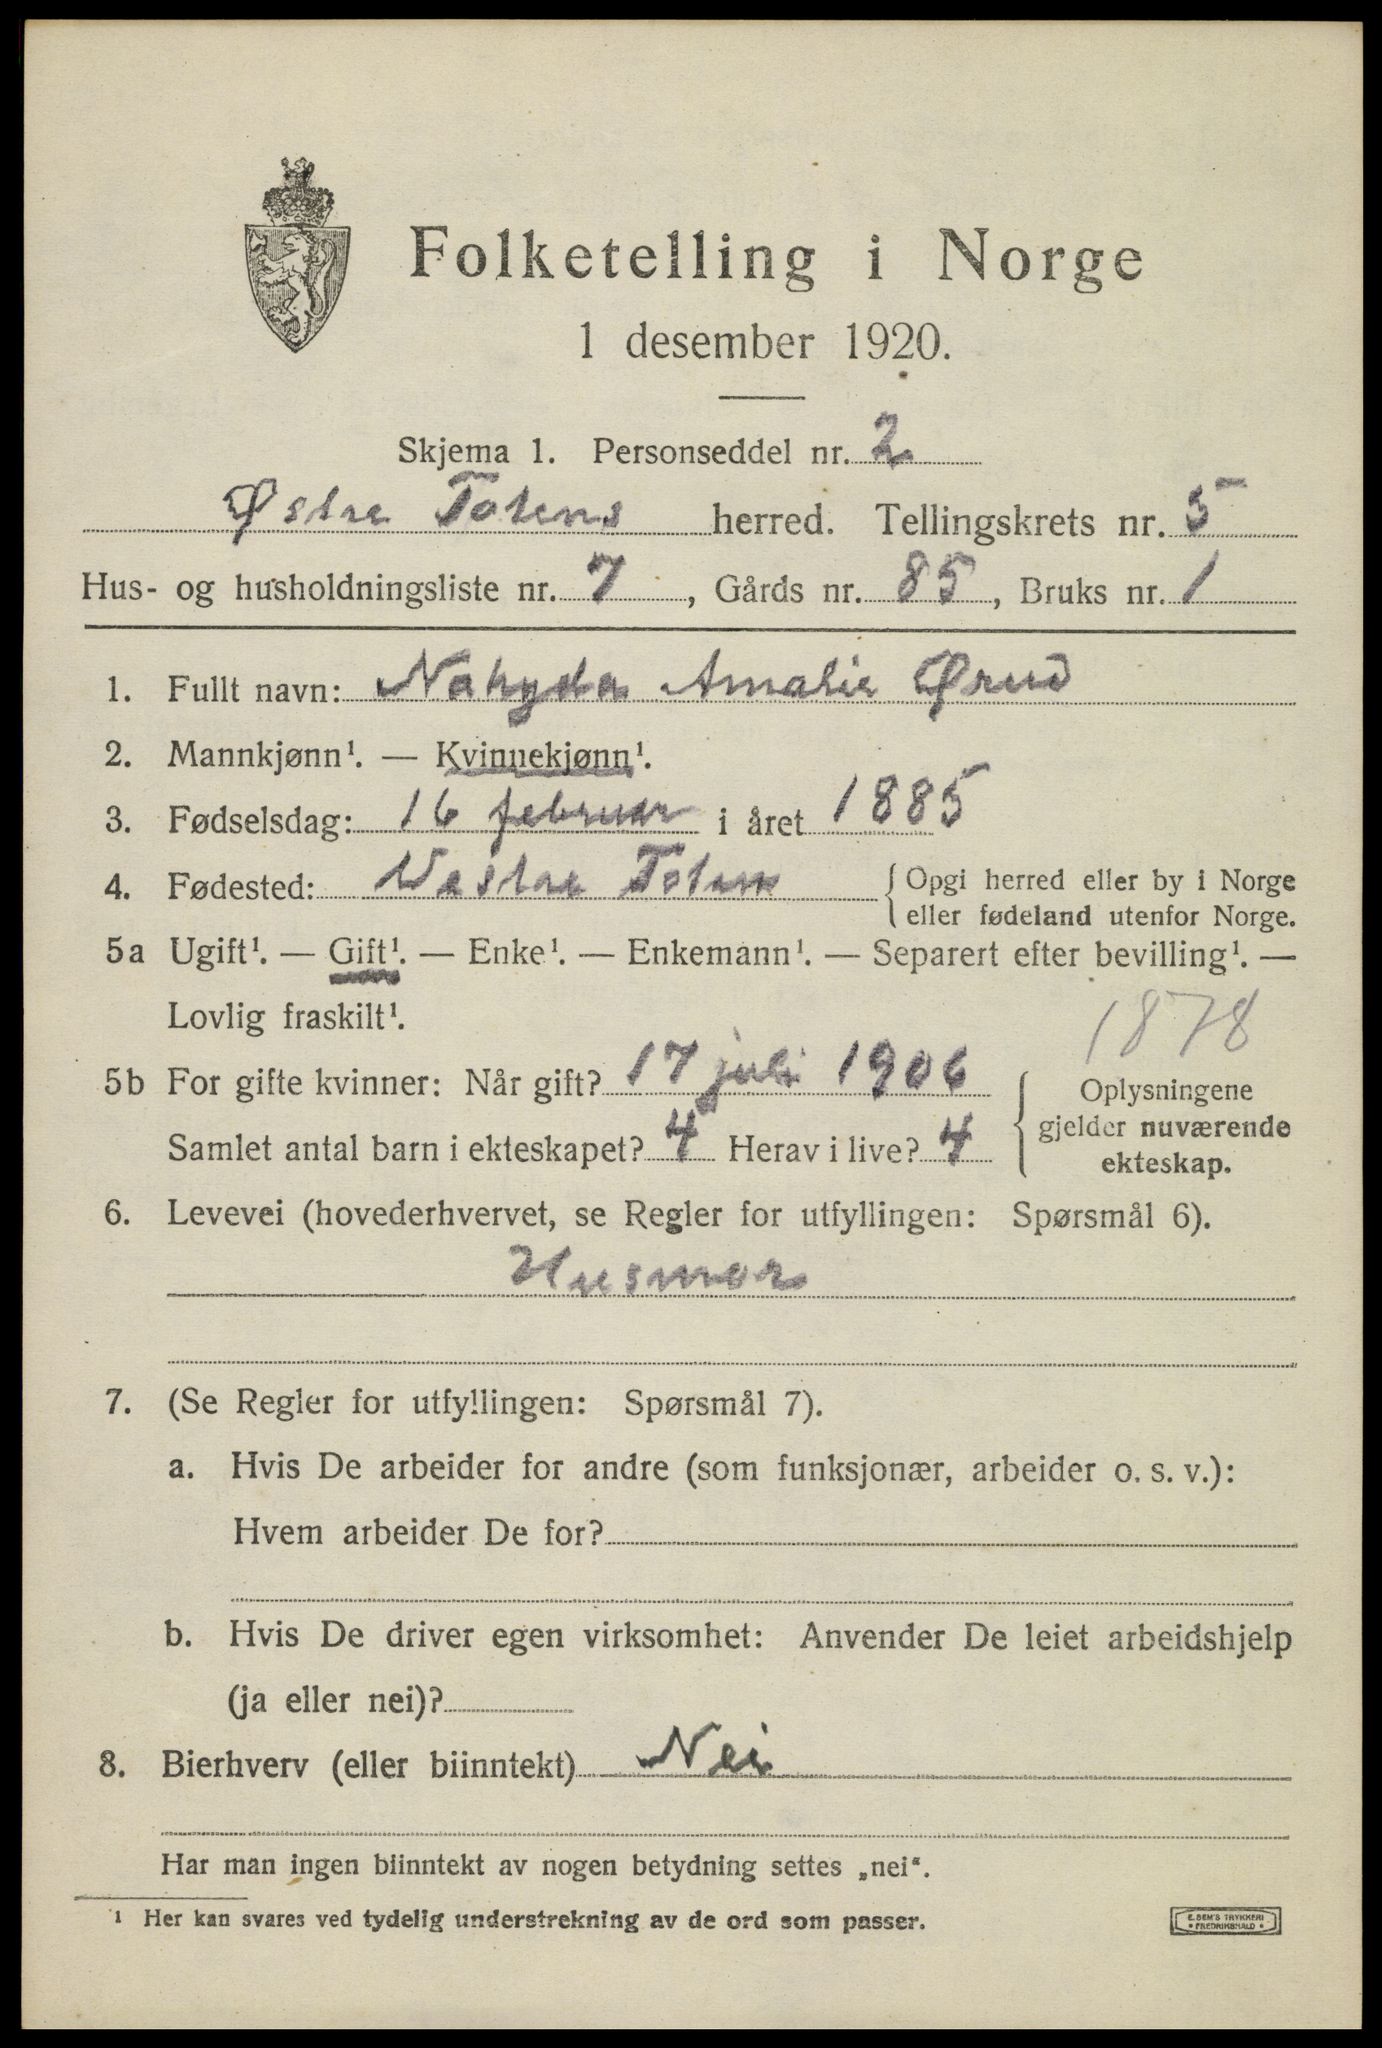 Folketelling i Norge
1 desember 1920.
Skjema 1. Personseddel nr. 2
Østre Totens herred. Tellingskrets nr. 5
Hus- og husholdningsliste nr. 7, Gårds nr. 85, Bruks nr. 1
1. Fullt navn: Amalie Ørud
2. Mannkjønn¹. — Kvinnekjønn¹.
3. Fødselsdag: 16 februar i året 1885
4. Fødested: Vestre Toten { Opgi herred eller by i Norge
eller fødeland utenfor Norge.
5a Ugift¹. — Gift¹. — Enke¹. — Enkemann¹. — Separert efter bevilling¹. —
Lovlig fraskilt¹.
1878
5b For gifte kvinner: Når gift? 17 juli 1906
Samlet antal barn i ekteskapet? 4 Herav i live? 4
{ Oplysningene
gjelder nuværende
ekteskap.
6. Levevei (hovederhvervet, se Regler for utfyllingen: Spørsmål 6).
Husmor
7. (Se Regler for utfyllingen: Spørsmål 7).
a. Hvis De arbeider for andre (som funksjonær, arbeider o. s. v.):
Hvem arbeider De for?
b. Hvis De driver egen virksomhet: Anvender De leiet arbeidshjelp
(ja eller nei)?
8. Bierhverv (eller biinntekt) Nei
Har man ingen biinntekt av nogen betydning settes „nei“.
¹ Her kan svares ved tydelig understrekning av de ord som passer.
E. SEM'S TRYKKERI
• FREDRIKSHALD •